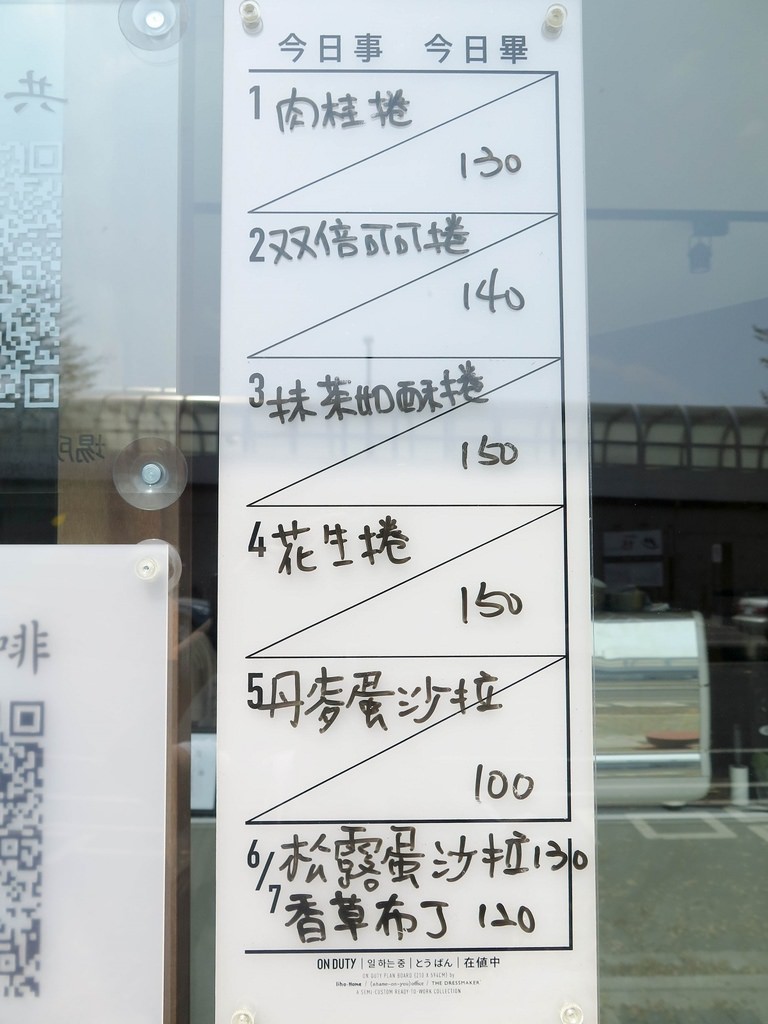 今日事 今日畢
1 肉桂捲
130
2 双倍可可捲
140
3 抹茶奶酥捲
150
4 花生捲
150
5 丹麥蛋沙拉
100
6/7 松露蛋沙拉 130
香草布丁 120
ON DUTY | 일하는중 | とうばん | 在値中
ON DUTY PLAN BOARD
THE DRESSMAKER
A SEMI-CUSTOM READY TO-WORK COLLECTION
啡
共
場所